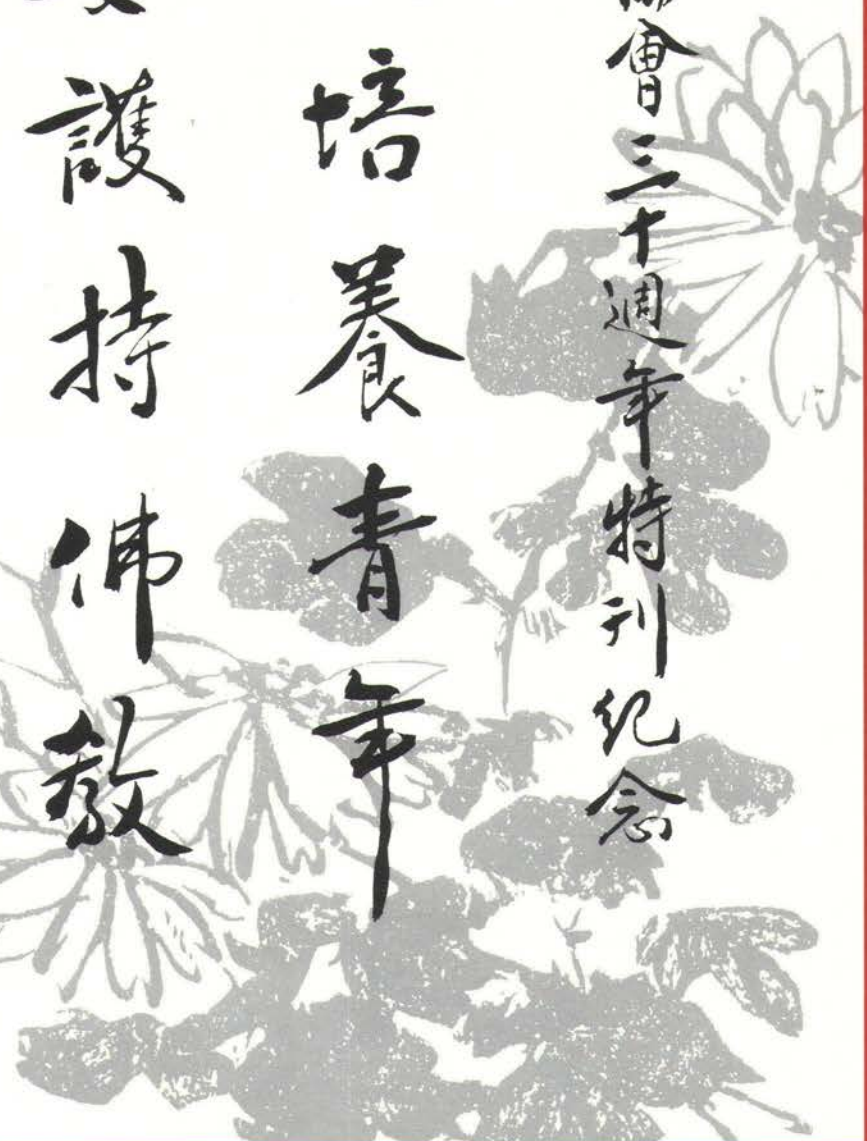 會三十週年特刊紀念
培養青年
護持佛教